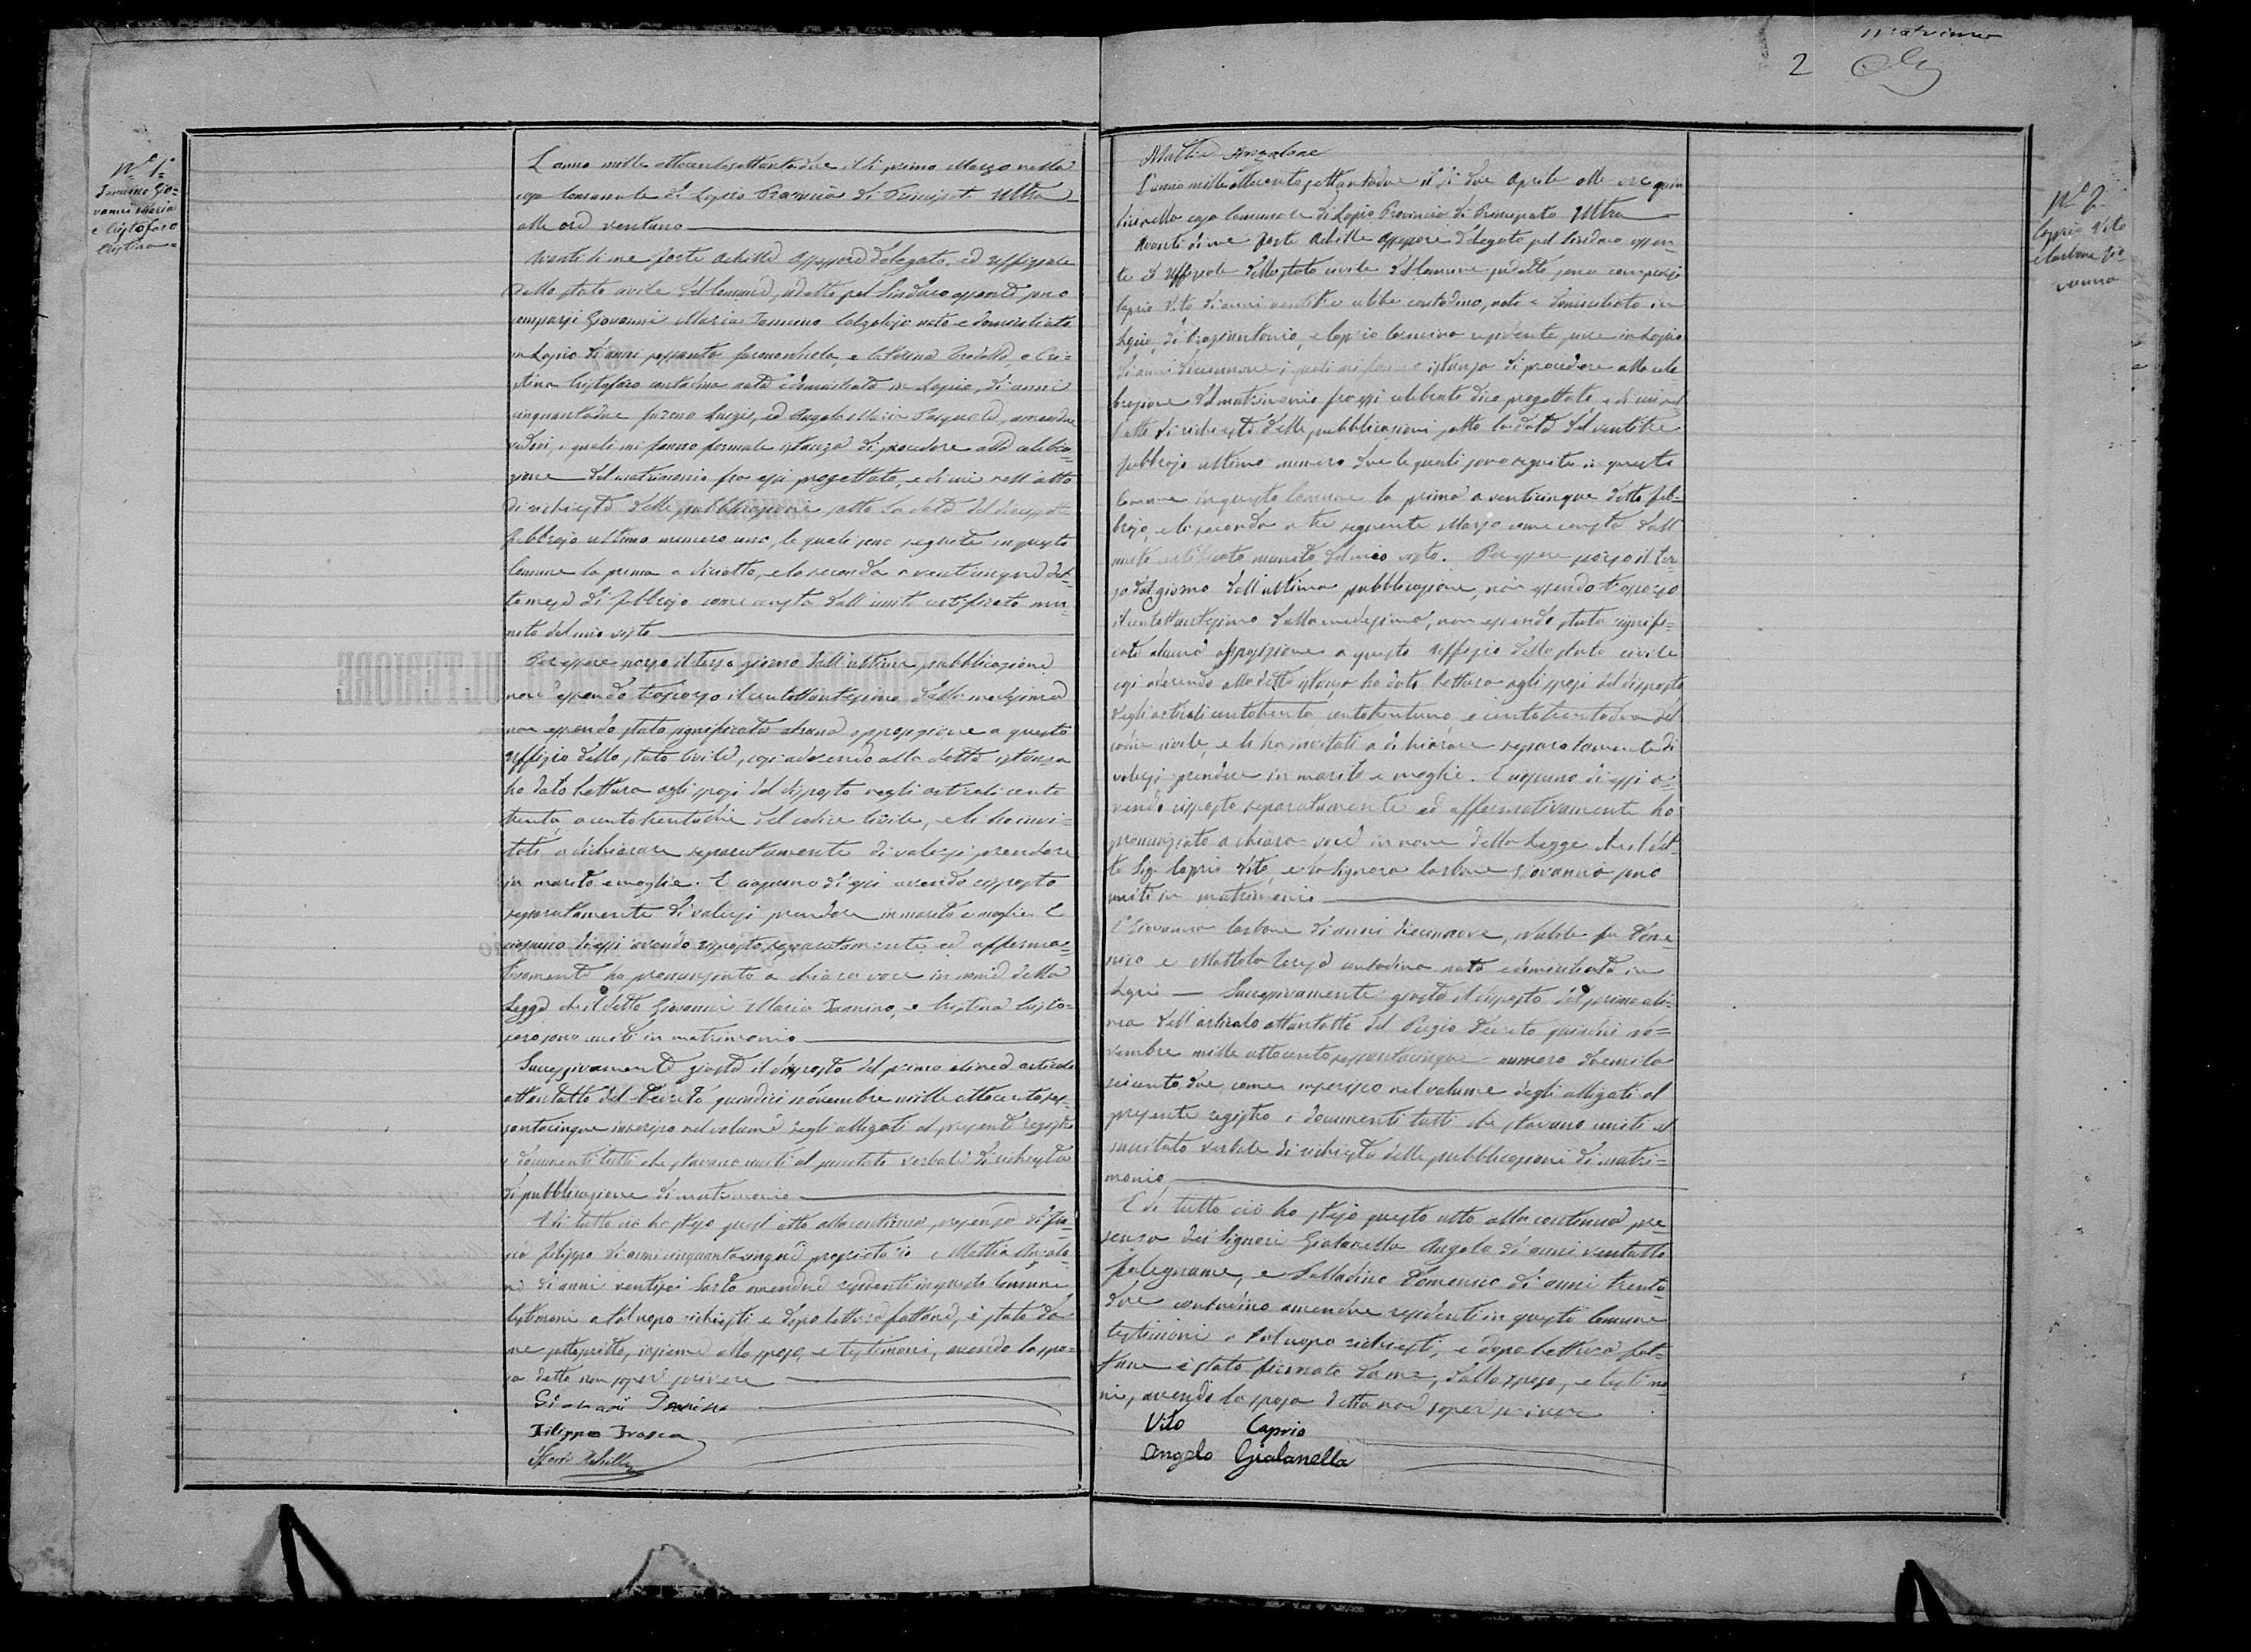 N.° 1.°
Iannino Gio=
vanni Maria
e Cristofaro
Cristina=
L'anno mille ottocentosettantadue il dì primo Marzo nella
casa Comunale di Lapio Provincia di Principato Ultra
alle ore ventuno
Avanti di me Forte Achille Assessore delegato, ed Uffiziale
dello stato civile del Comune, addetto pel Sindaco assente sono
comparsi Giovanni Maria Iannino Calzolajo nato e domiciliato
in Lapio di anni sessanta e Caterina e Cri=
stina Cristofaro contadina nata e domiciliata in Lapio, di anni
cinquantadue Luigi, ed Angela Maria Pasquale, amendue
vedovi, i quali mi fanno formale istanza di procedere alla celebra=
zione del matrimonio fra essi progettato, e di cui nell'atto
di richiesta delle pubblicazioni sotto la data del
febbrajo ultimo numero uno, le quali sono seguite in questo
Comune la prima a diciotto, e la seconda a venticinque det=
to mese di febbrajo come consta dall'unito certificato mu=
nito del mio visto
Per essere scorso il terzo giorno dall'ultima pubblicazione
non essendo trascorso il centottantesimo dalla medesima
non essendo stata significata alcuna opposizione a questo
Uffizio dello stato Civile, così aderendo alla detta istanza
ho dato lettura agli sposi del disposto negli articoli cento
trenta, a centotrentadue del codice Civile, e li ho invi=
tati a dichiarare separatamente di volersi prendere
in marito e moglie. E ciascuno di essi avendo risposto
separatamente di volersi prendere in marito e moglie E
ciascuno di essi avendo risposto separatamente ed afferma=
tivamente ho pronunziato a chiara voce in nome della
Legge che il detto Giovanni Maria Iannino, e Cristina Cristo=
faro sono uniti in matrimonio
Successivamente giusta il disposto del primo alinea articolo
ottantotto del Decreto quindici novembre mille ottocentoses=
santacinque inserisco nel volume degli allegati al presente registro
i documenti tutti che stavano uniti al succitato verbale di richiesta
di pubblicazione di matrimonio
E di tutto ciò ho steso quest'atto alla continua presenza di Fra=
sca Filippo di anni cinquantacinque proprietario e Mattia Anzalo=
ne di anni ventisei Sarto amendue residenti in questo Comune
testimoni a tal uopo richiesti e dopo lettura fattane, è stato da
me sottoscritto, insieme allo sposo, e testimoni, avendo la spo=
sa detto non saper scrivere
Giovanni Iannino
Filippo Frasca
Forte Achille
Matrimo
2
Mattia Anzalone
L'anno mille ottocento settantadue il dì due Aprile alle ore quin
dici nella casa Comunale di Lapio Provincia di Principato Ultra
Avanti di me Forte Achille Assessore delegato pel Sindaco assen=
te ed Uffiziale dello stato civile del Comune suddetto sono comparsi
Caprio Vito di anni ventitre celibe contadino, nato e domiciliato in
Lapio, di Crescentonio, e Caprio residente pure in Lapio
di anni diecinnove i quali mi fanno istanza di procedere alla cele
brazione del matrimonio fra essi celebrato dico progettato e di cui nel
l'atto di richiesta delle pubblicazioni sotto la data del ventitre
febbrajo ultimo numero due le quali sono seguite in questo
Comune in questo Comune la prima a venticinque detto feb=
brajo, e la seconda a tre seguente Marzo come consta dall'
unito certificato munito del mio visto. Per essere scorso il ter=
zo dal giorno dell'ultima pubblicazione, non essendo trascorso
il centottantesimo dalla medesima, non essendo stata signifi=
cata alcuna opposizione a questo Uffizio dello stato civile
così aderendo alla detta istanza ho dato lettura agli sposi del disposto
negli articoli centotrenta, centotrentuno e centotrentadue del
codice civile, e li ho invitati a dichiarare separatamente di
volersi prendere in marito e moglie. E ciascuno di essi a=
vendo risposto separatamente ed affermativamente ho
pronunziato a chiara voce in nome della Legge che il det=
to Sig. Caprio Vito, e la Signora Carbone Giovanna sono
uniti in matrimonio
E Giovanna Carbone di anni diecinnove, nubile fu Dome=
nico e Mattola Teresa contadina nata e domiciliata in
Lapio — Successivamente giusta il disposto del primo ali=
nea dell'articolo ottantotto del Regio Decreto quindici no=
vembre mille ottocentosessantacinque numero duemila
seicento due come inserisco nel volume degli allegati al
presente registro i documenti tutti che stavano uniti al
succitato verbale di richiesta delle pubblicazioni di matri=
monio
E di tutto ciò ho steso questo atto alla continua pre=
senza dei Signori Gialanella Angelo di anni ventotto
falegname, e Salladino Domenico di anni trenta=
due contadino amendue residenti in questo Comune
testimoni a tal uopo richiesti, e dopo lettura fat=
tane è stato firmato da me, dallo sposo, e testimo=
ni, avendo la sposa detto non saper scrivere
Vito Caprio
Angelo Gialanella
N.° 2.
Caprio Vito
e Carbone Gio=
vanna